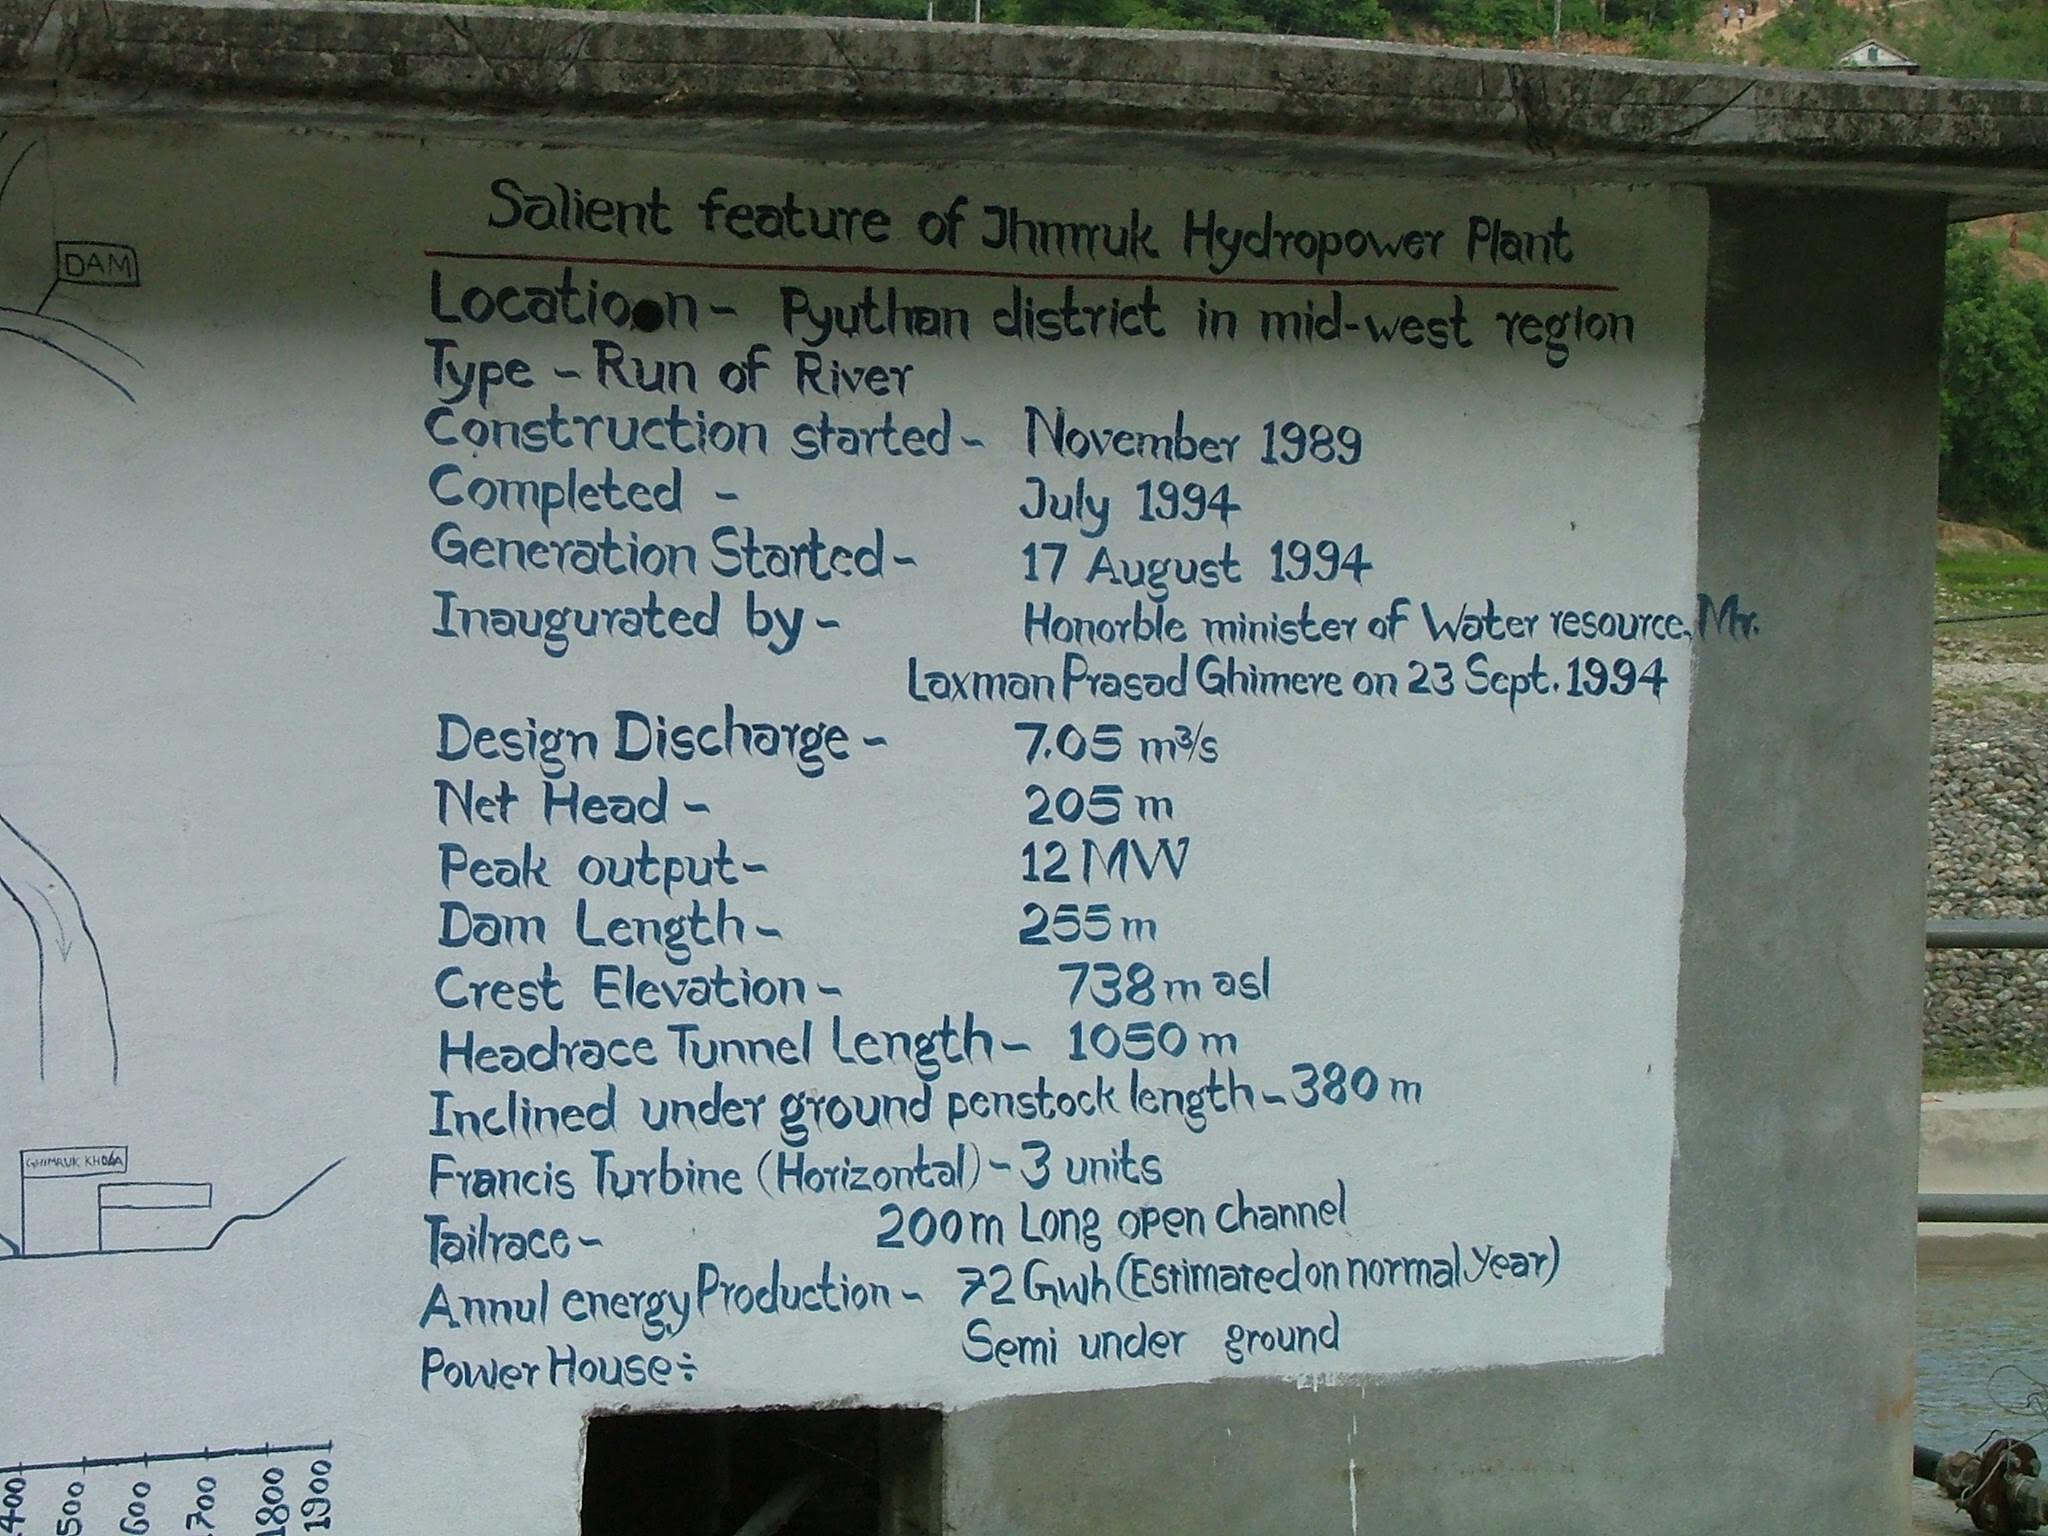 Salient feature of Jhmruk Hydropower Plant
Location - Pyuthan district in mid-west region
Type - Run of River
Construction started - November 1989
Completed - July 1994
Generation Started - 17 August 1994
Inaugurated by - Honorble minister of Water resource, Mr.
Laxman Prasad Ghimere on 23 Sept. 1994
Design Discharge - 7.05 m³/s
Net Head - 205 m
Peak output - 12 MW
Dam Length - 255 m
Crest Elevation - 738 m asl
Headrace Tunnel Length - 1050 m
Inclined under ground penstock length - 380 m
Francis Turbine (Horizontal) - 3 units
Tailrace - 200 m Long open channel
Annul energy Production - 72 Gwh (Estimated on normal year)
Power House ÷ Semi under ground
DAM
GHIMRUK KHOLA
400
500
600
1700
1800
1900